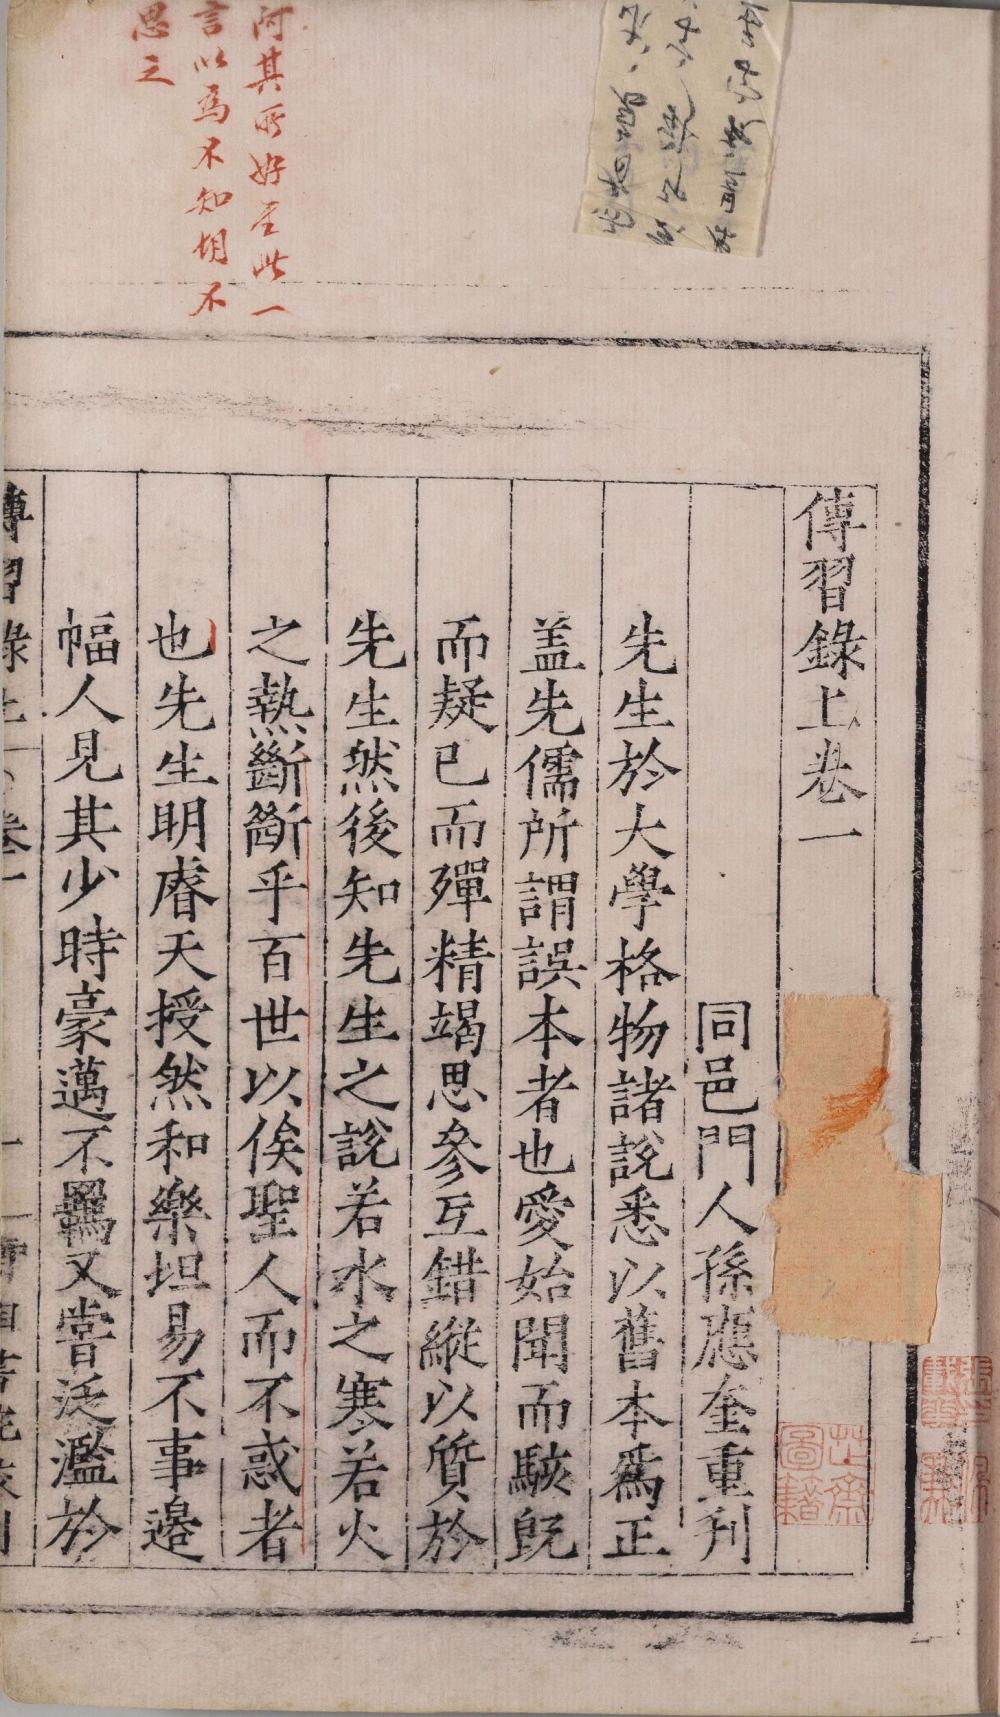 傳習錄上卷一
同邑門人孫應奎重刋
先生於大學格物諸說悉以舊本爲正
盖先儒所謂誤本者也愛始聞而駭旣
而疑已而殫精竭思參互錯縱以質於
先生然後知先生之說若水之寒若火
之熱斷斷乎百世以俟聖人而不惑者
也先生明睿天授然和樂坦易不事邉
幅人見其少時豪邁不羈又嘗泛濫於
傳習錄上 卷一
阿其所好至此一
言以爲不知胡不
思之
芷齋
圖籍